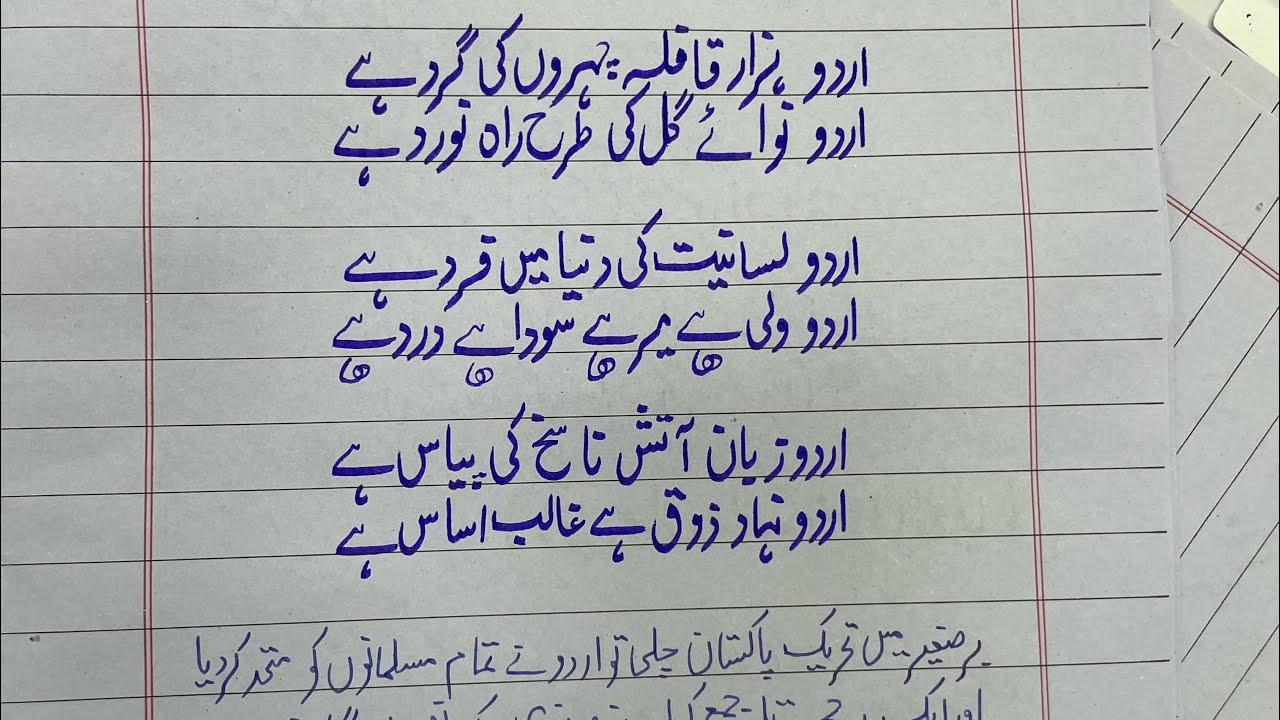 اردو ہزار قافلہ چہروں کی گرد ہے
اردو نوائے گل کی طرح راہ نورد ہے
اردو لسانیت کی دنیا میں فرد ہے
اردو ولی ہے میر ہے سودا ہے درد ہے
اردو زبان آتش ناسخ کی پیاس ہے
اردو نہاد ذوق ہے غالب اساس ہے
برصغیر میں تحریک پاکستان چلی تو اردو نے تمام مسلمانوں کو متحد کر دیا